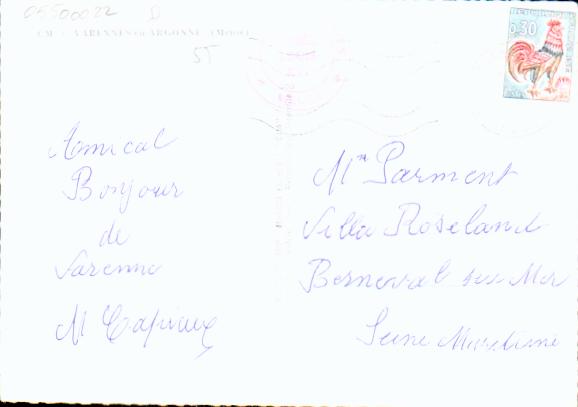 05500022 D
CM - VARENNES en ARGONNE (Meuse)
5T
0,30
Amical
Bonjour
de
Varenne
M
Mme Parment
Villa Roseland
Berneval sur Mer
Seine Maritime